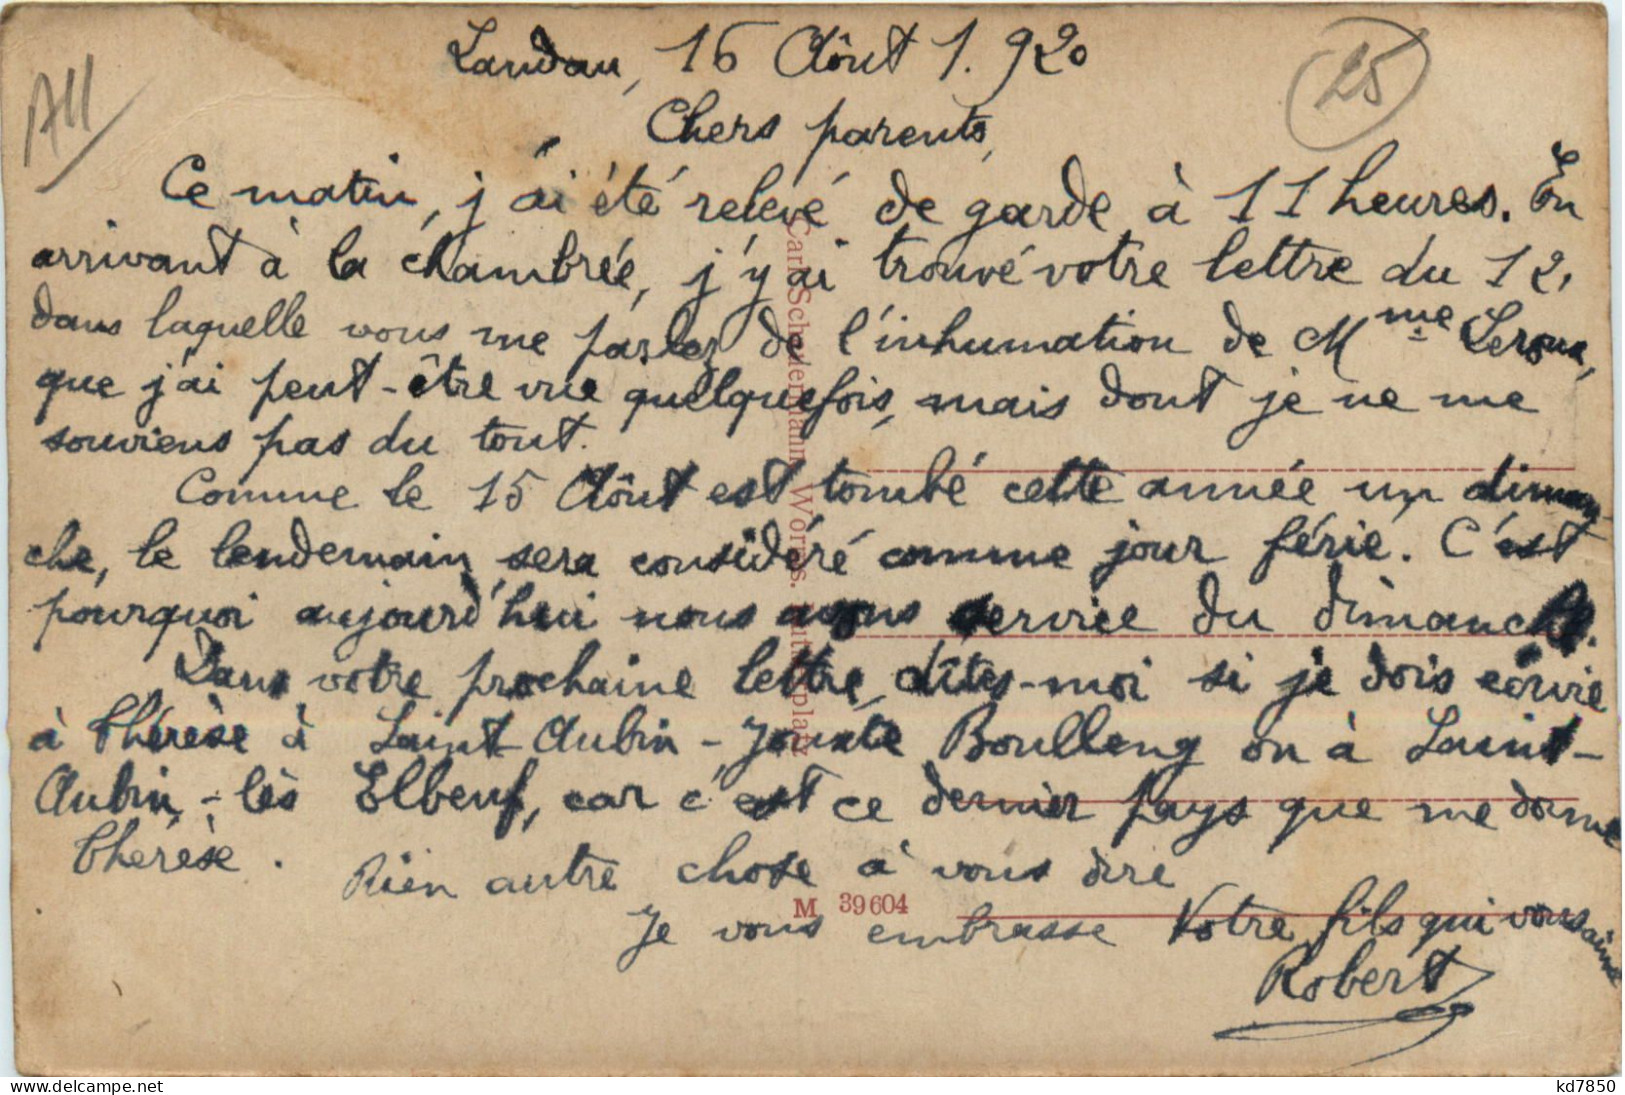 All
25
Landau, 16 Aôut 1.920
Chers parents,
Ce matin, j'ai été relevé de garde à 11 heures. En
arrivant à la chambrée, j'y ai trouvé votre lettre du 12,
dans laquelle vous me parlez de l'inhumation de Mme Leroux,
que j'ai peut-être vue quelquefois, mais dont je ne me
souviens pas du tout.
Comme le 15 Aôut est tombé cette année un diman-
che, le lendemain sera considéré comme jour férié. C'est
pourquoi aujourd'hui nous avons service du dimanche.
Dans votre prochaine lettre, dîtes-moi si je dois écrire
à Thérèse à Saint-Aubin-Jouxte Boulleng ou à Saint-
Aubin-lès Elbeuf, car c'est ce dernier pays que me donne
Thérèse.
Rien autre chose à vous dire
Je vous embrasse Votre fils qui vous aime
Robert
Carl Scheuermann, Worms.
M 39604
kd7850
delcampe.net